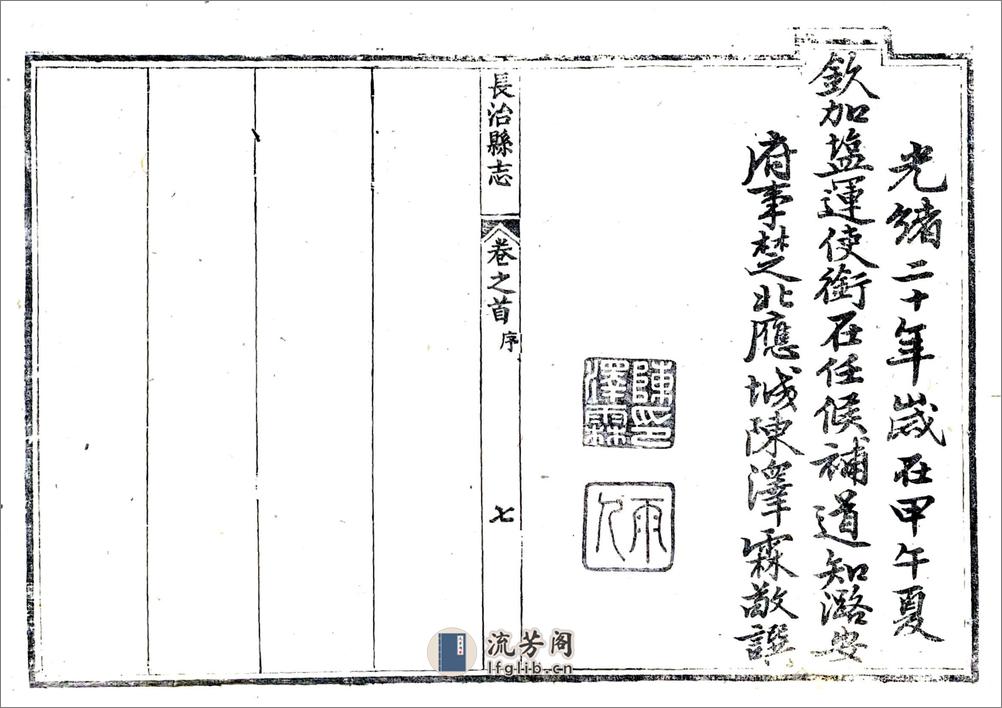 光緒二十年歲在甲午夏
欽加塩運使銜在任候補道知潞安
府事楚北應城陳澤霖敬譔
陳印
澤霖
雨
人
長治縣志
卷之首
序
七
流芳阁
lfglib.cn